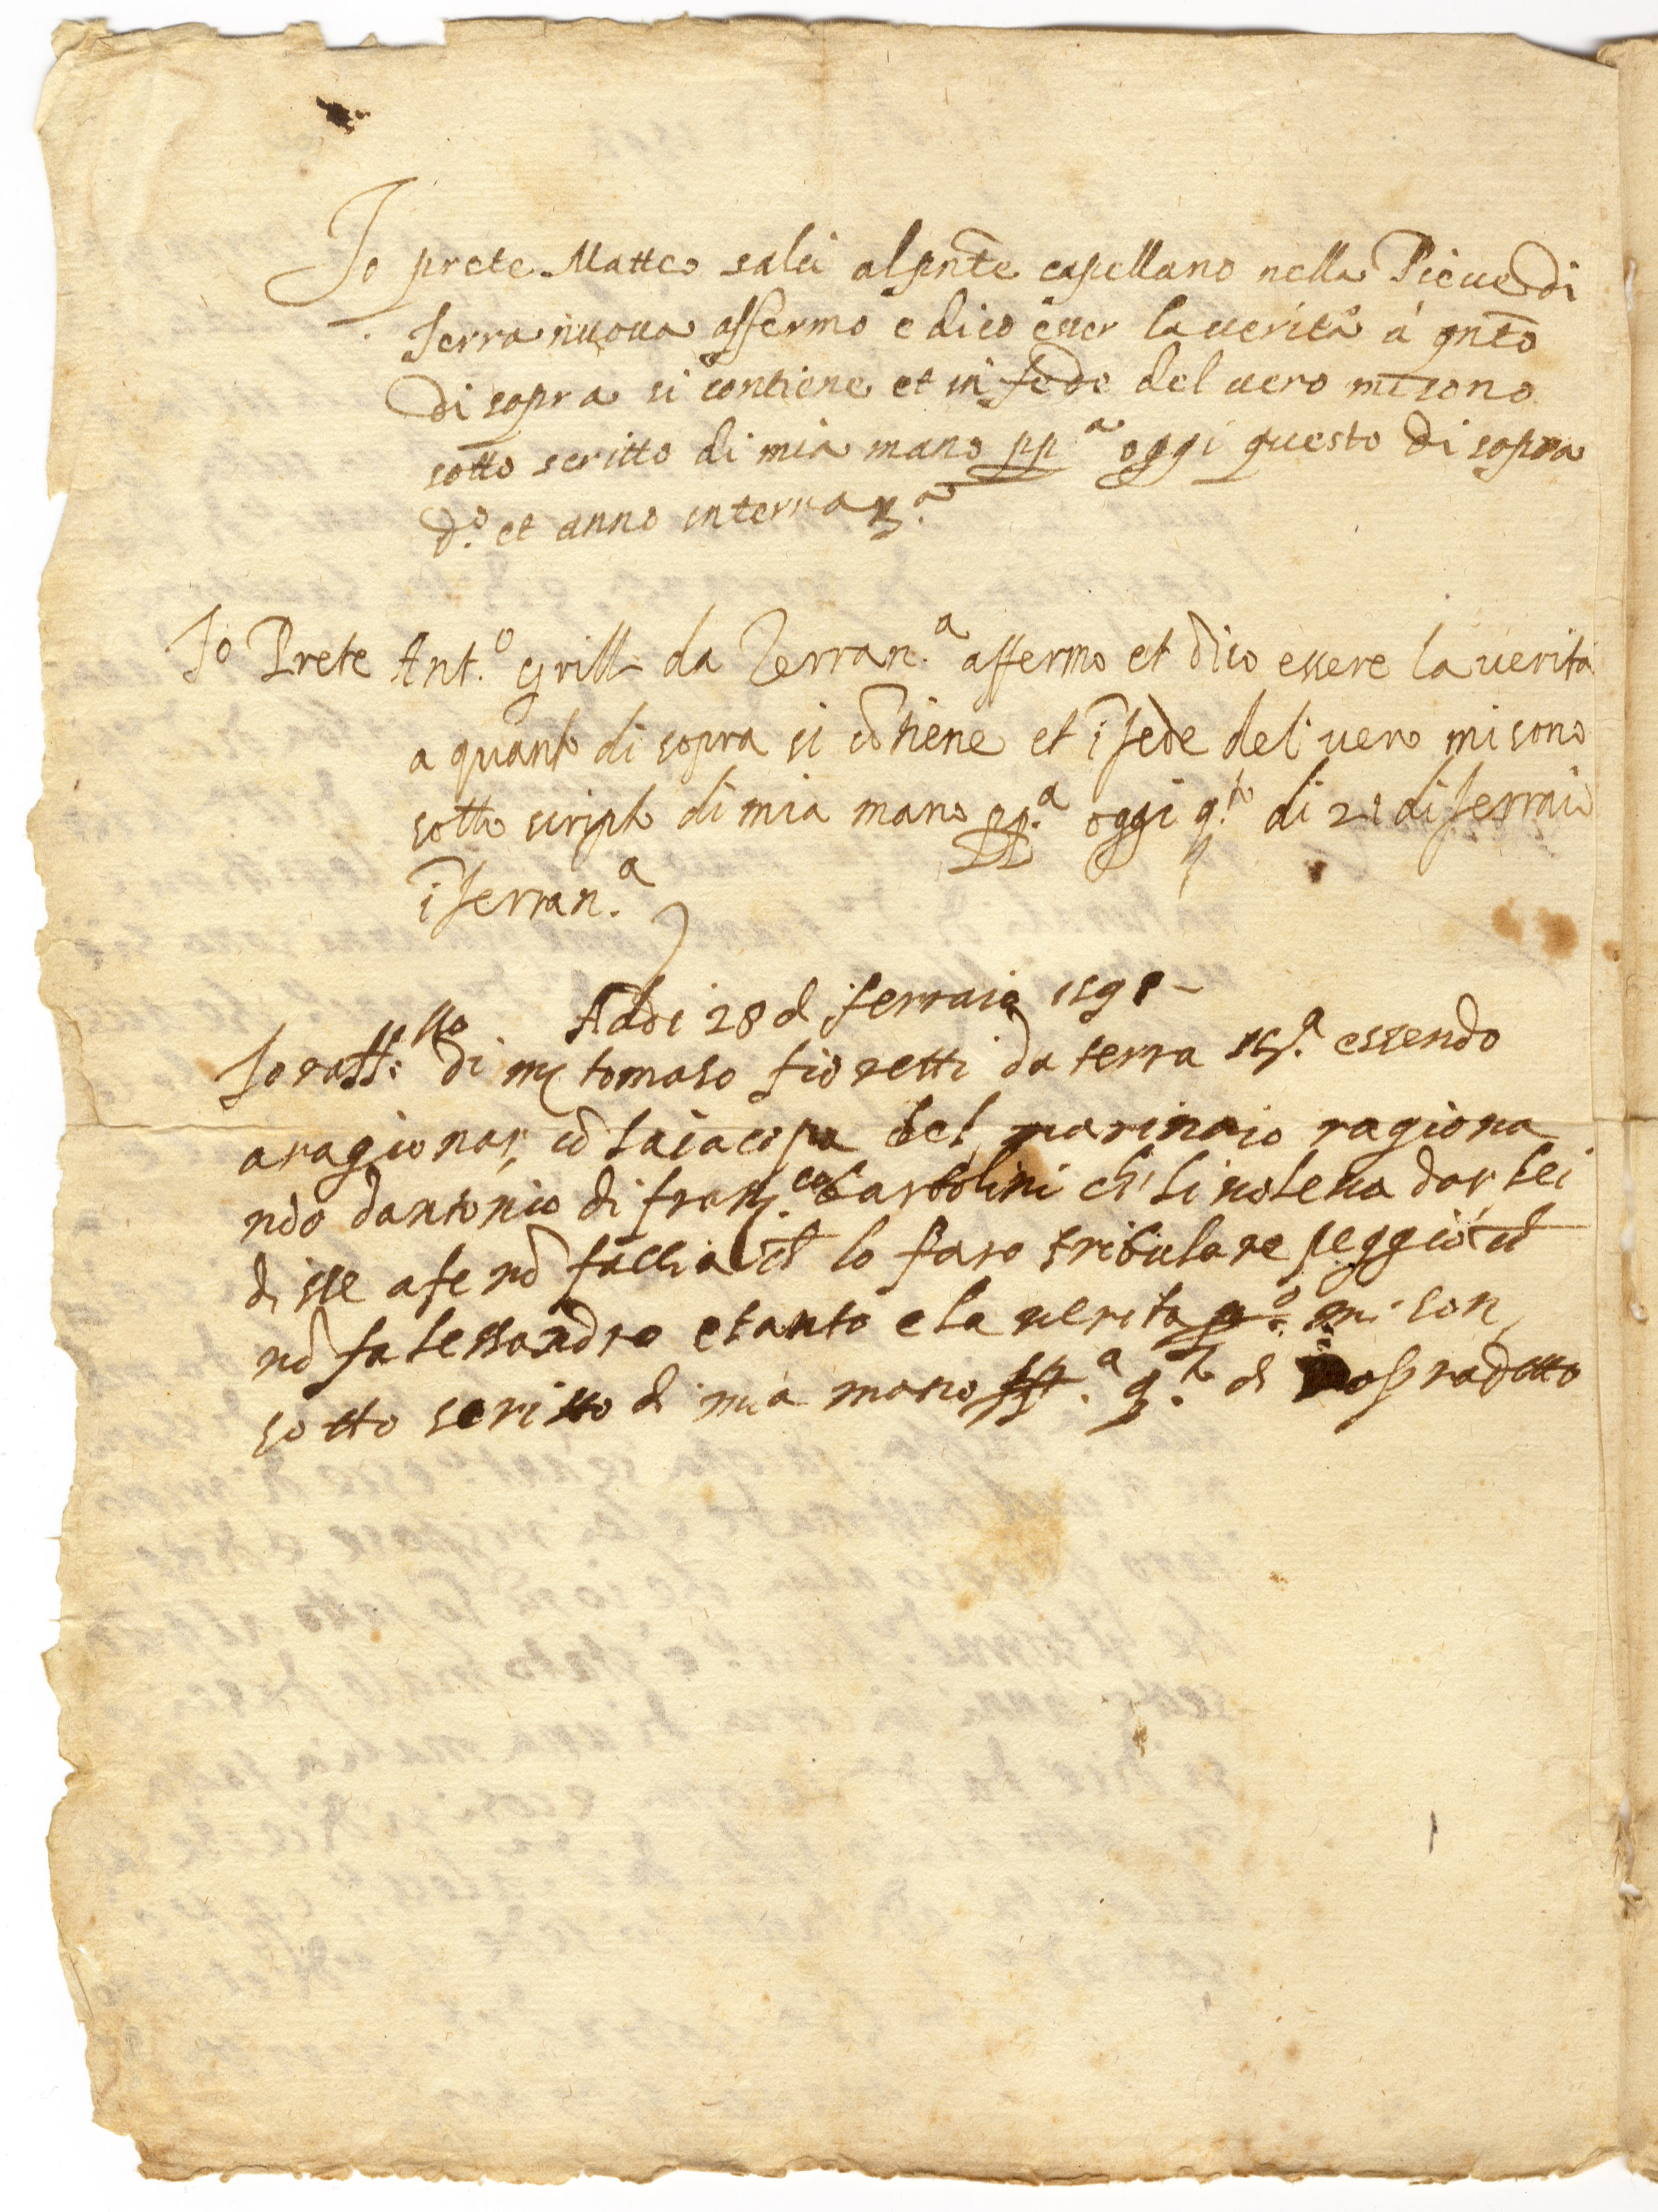 Io prete Matteo salvi alpnte capellano nella Pieue di
Terra nuoua affermo e dico esser la uerità á qnto
di sopra si contiene et in fede del uero mi sono
sotto scritto di mia mano pp.a oggi questo di sopra
d.o et anno in terra n.a
Io Prete Ant.o Grilli da Terran.a affermo et dico essere la uerita
a quanto di sopra si cōtiene et ī fede del uero mi sono
sotto scripto di mia mano pp.a oggi q.to di 21 di ferraio
ī Terran.a
Addi 28 d ferraio 1591
Io raff.llo di mº tomaso fioretti da terra n.a essendo
a ragionar cō la iacopa del marinaio ragiona
ndo dantonio di franc.co bartolini ch' li uoleua dar lei
disse a se nō facci a lo faro tribulare peggio ch
nō fa lessandro e tanto e la uerita p.o mi son
sotto scritto di mia mano pp.a q.to di sopradetto